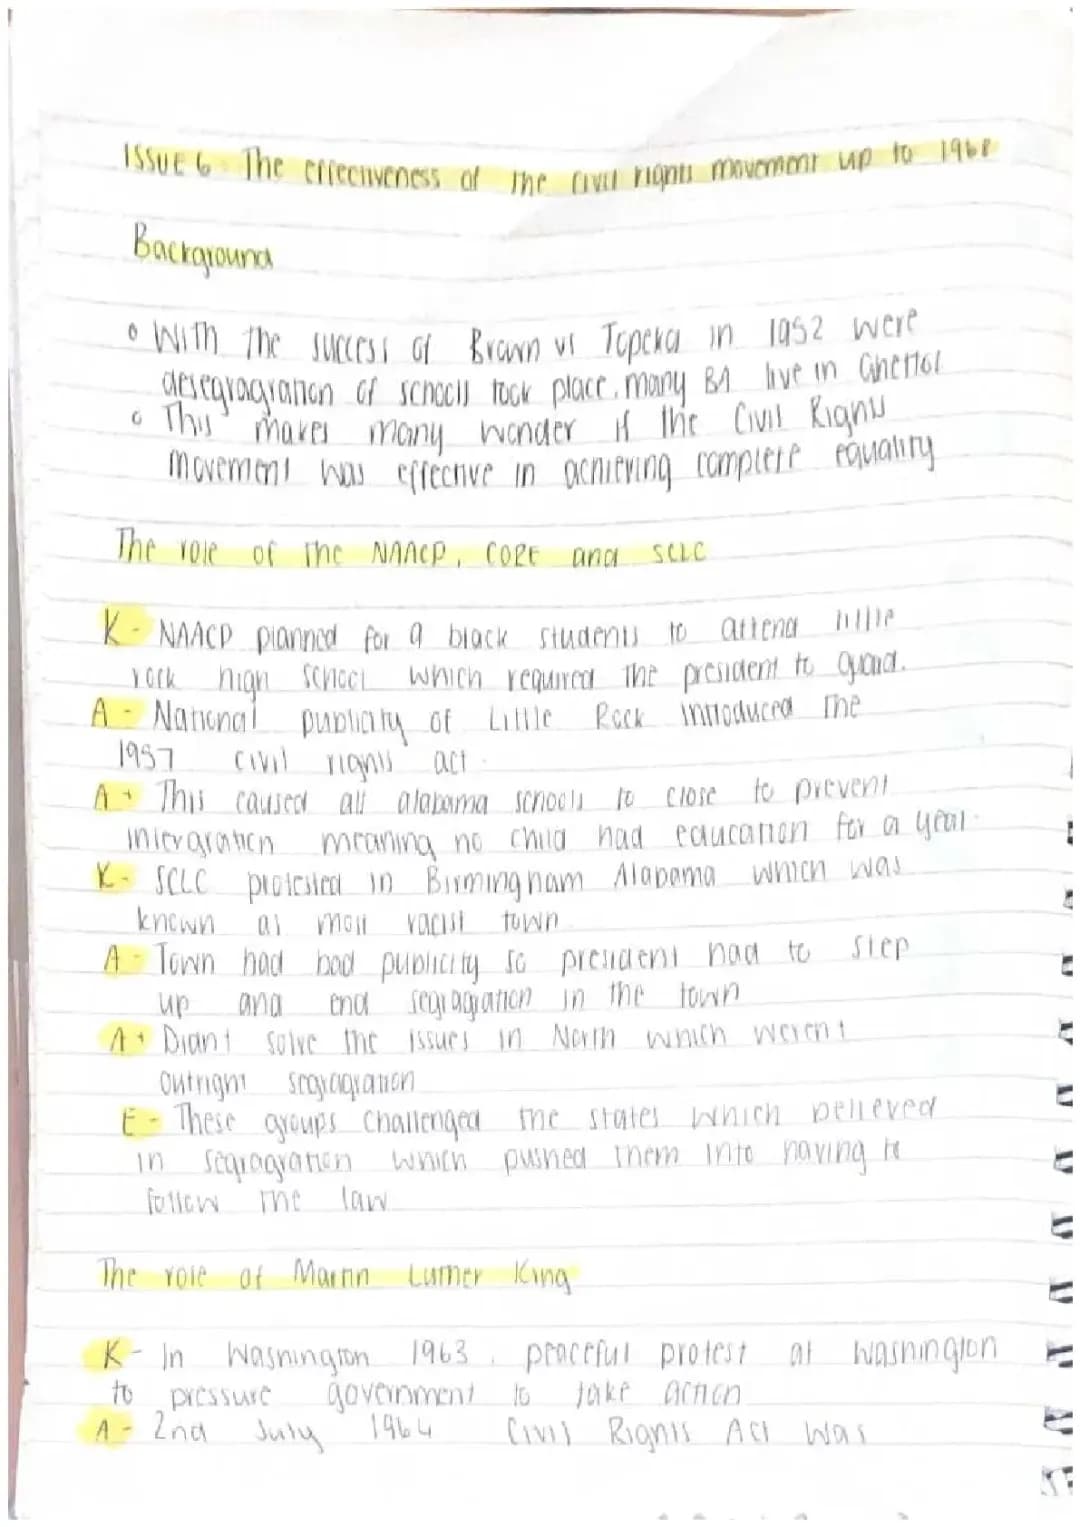 ISSUE 6 - The effectiveness of the civil rights movement up to 1968
Background
o With the success of Brown vs Topeka in 1952 were
desegragration of schools took place, many BA live in Ghettos
o This makes many wonder if the Civil Rights
movement was effective in achieving complete equality
The role of the NAACP, CORE and SCLC
K - NAACP planned for 9 black students to attend little
rock high school which required the president to guard.
A - National publicity of Little Rock introduced the
1957 civil rights act.
A+ This caused all alabama schools to close to prevent
intergration meaning no child had education for a year.
K - SCLC protested in Birmingham Alabama which was
known as most racist town
A - Town had bad publicity so president had to step
up and end segragration in the town
A+ Didnt solve the issues in North which werent
outright segragration
E - These groups challenged the states which believed
in segragration which pushed them into having to
follow the law
The role of Martin Luther King
K - In Washington 1963, peaceful protest at washington
to pressure government to take action
A - 2nd July 1964 Civil Rights Act was